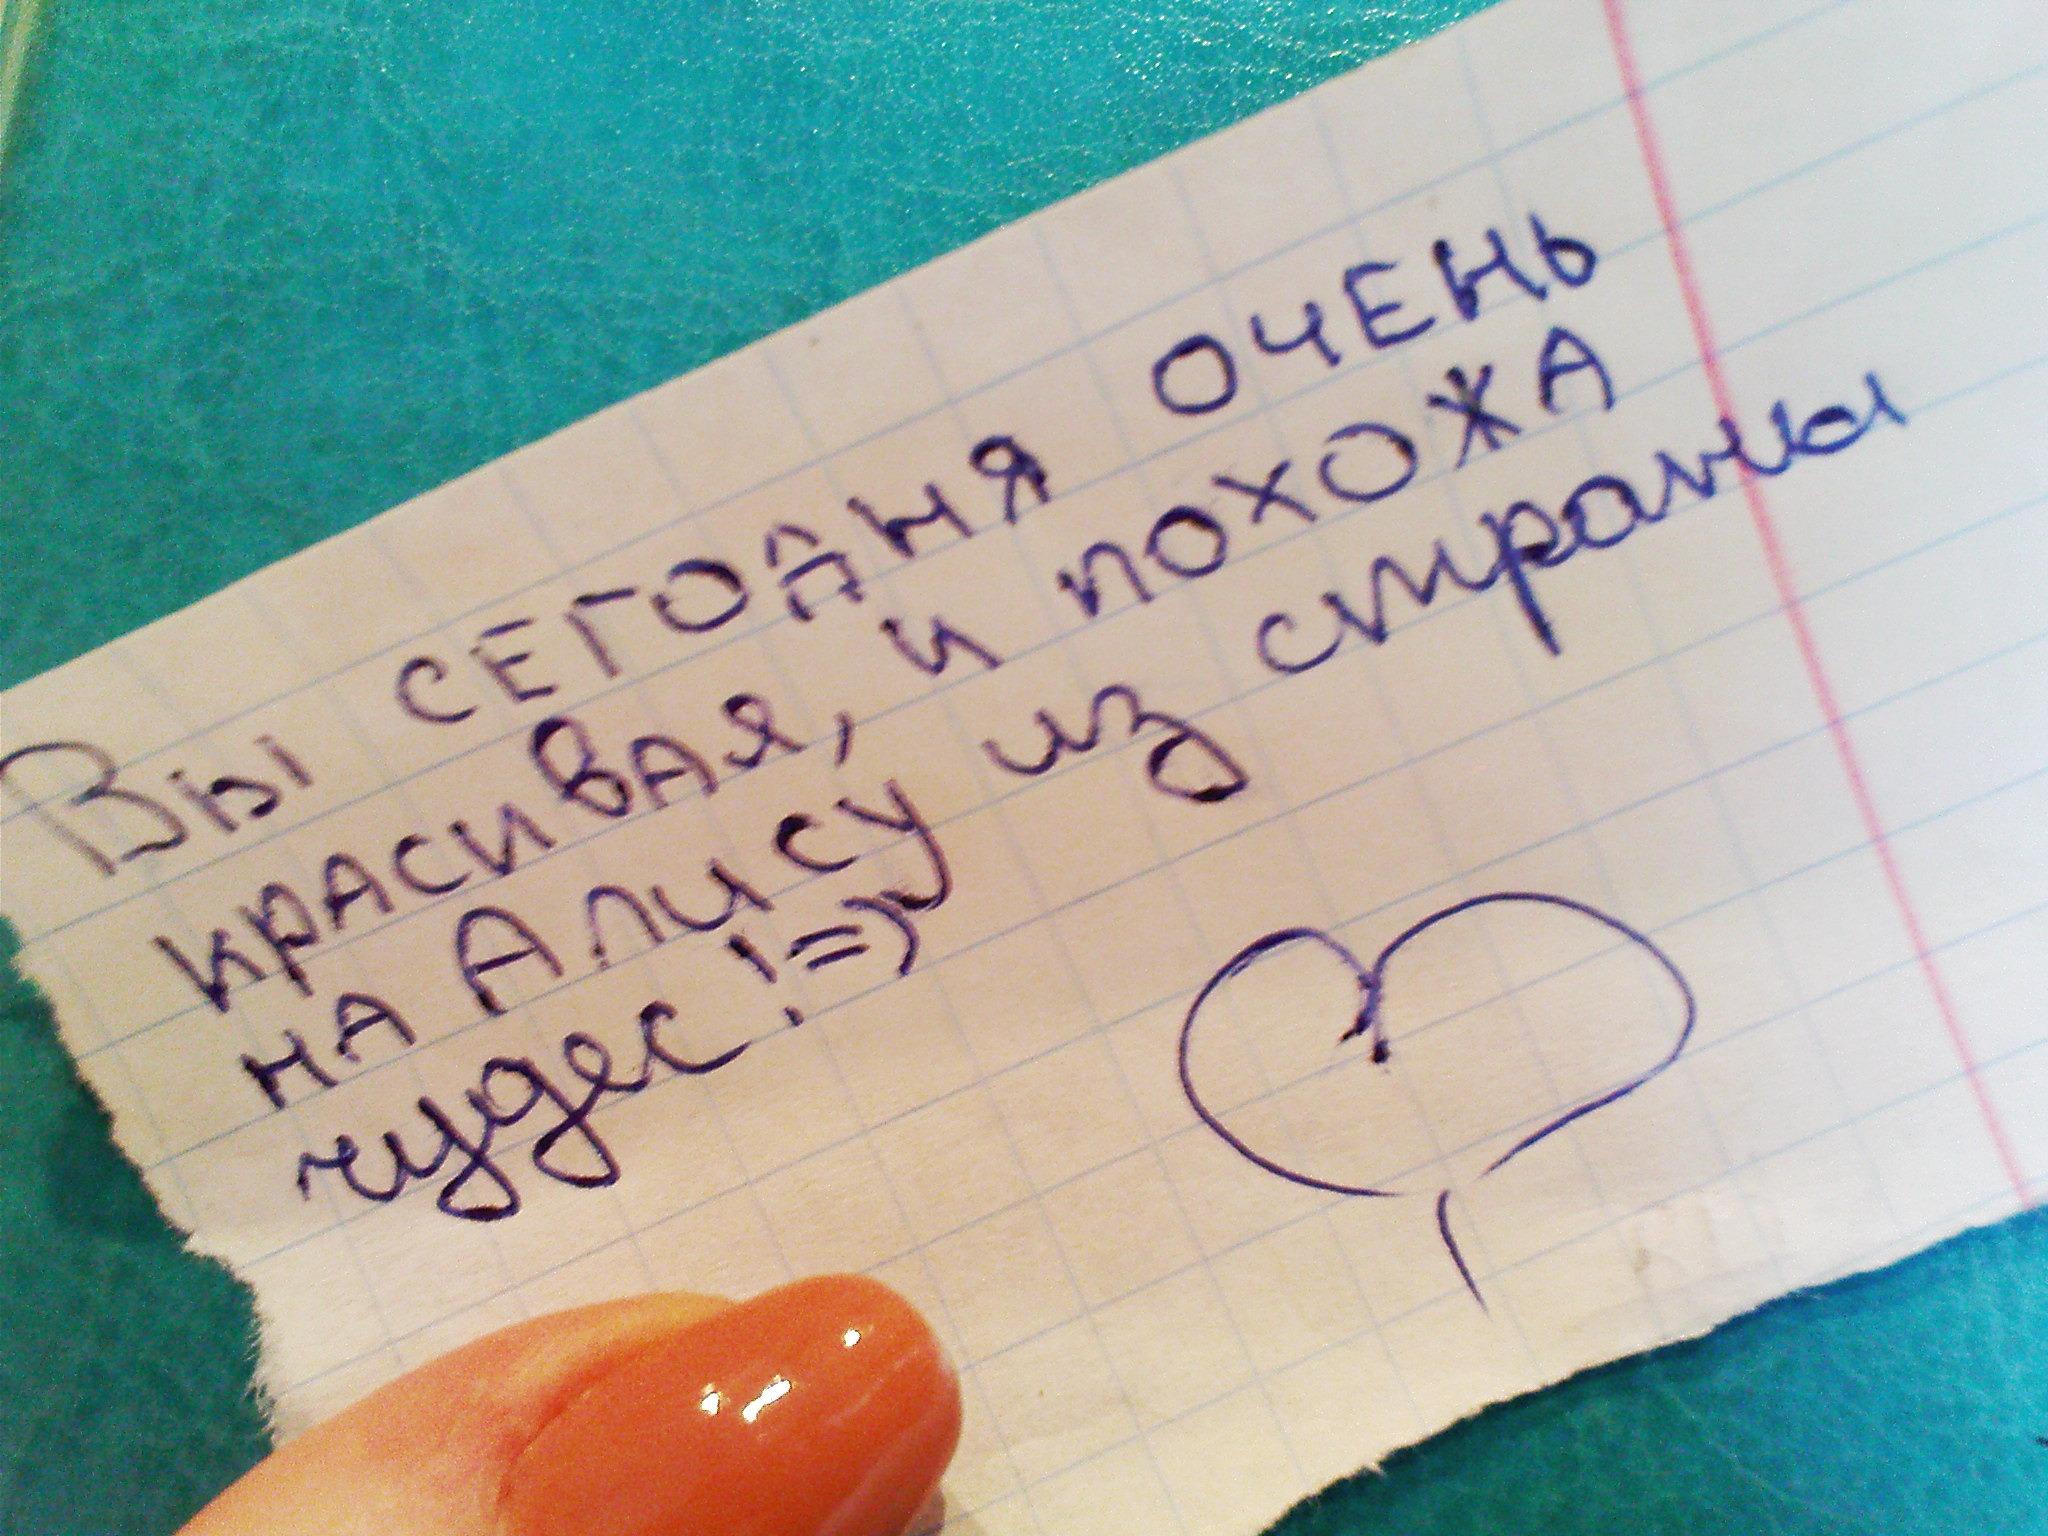 Вы сегодня очень
красивая, и похожа
на Алису из страны
чудес! =)